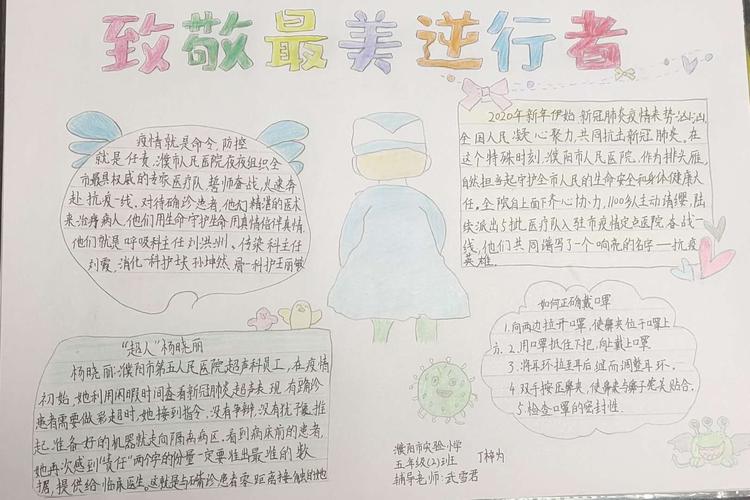 致敬最美逆行者
疫情就是命令,防控
就是任责,濮市人民医院夜夜组织全
市最具权威的专家医疗队,誓师奋战,火速奔
赴抗疫一线,对待确诊患者,他们精湛的医术
来治疗病人,他们用生命守护生命用真情倍伴真情
他们就是呼吸科主任刘洪洲、传染科主任
刘霞,消化一科护士长孙坤然、骨一科护士丽敏
2020年新年伊始,新冠肺炎疫情来势汹汹
全国人民凝心聚力,共同抗击新冠肺炎。在
这个特殊时刻,濮阳市人民医院,作为排头雁,
自然担当起守护全市人民的生命安全和身体健康大
任。全院自上而下齐心协力,1100多人主动请缨,陆
续派出5批医疗队入驻市疫情定点医院,奋战一
线,他们共同谱写了一个响亮的名字——抗疫
英雄.
"超人"杨晓丽
杨晓丽:濮阳市第五人民医院超声科员工,在疫情
初始,她利用闲暇时间查看新冠肺炎超声表现,有确诊
患者需要做彩超时,她接到指令,没有争辩,没有犹豫,推
起准备好的机器就走向隔离病区.看到病床前的患者,
她再次感到"责任"两个字的份量一定要推出最准的数
据,提供给临床医生。这就是与确诊患者零距离接触的她
如何正确戴口罩
1.向两边拉开口罩,使鼻夹位于口罩上
方.2.用口罩抵住下把,向上戴上口罩
3.将耳环拉至耳后,继而调整耳环.
4.双手按压鼻夹,使鼻夹与鼻子完美贴合.
5.检查口罩的密封性.
濮阳市实验小学
五年级(2)班 丁梓为
辅导老师:武雪君